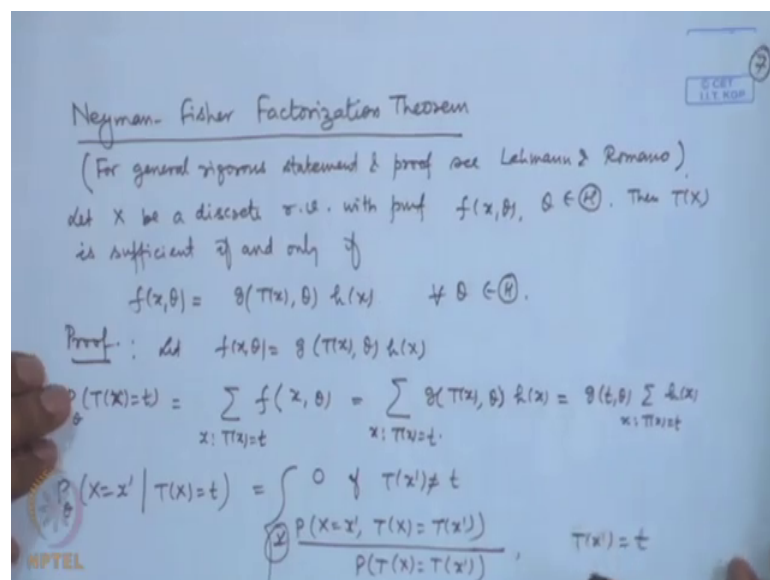 7
© CET
I.I.T. KGP
Neyman-Fisher Factorization Theorem
(For general rigorous statement & proof see Lehmann & Romano)
Let X be a discrete r.v. with pmf f(x,θ), θ ∈ Ⓗ. Then T(X)
is sufficient if and only if
f(x,θ) = g(T(x), θ) h(x) ∀ θ ∈ Ⓗ.
Proof: Let f(x,θ) = g(T(x), θ) h(x)
P_θ(T(X)=t) = Σ_{x: T(x)=t} f(x, θ) = Σ_{x: T(x)=t} g(T(x), θ) h(x) = g(t,θ) Σ_{x: T(x)=t} h(x)
P_θ(X=x' | T(X)=t) = { 0 if T(x') ≠ t
P(X=x', T(X)=T(x')) / P(T(X)=T(x')), T(x')=t
NPTEL